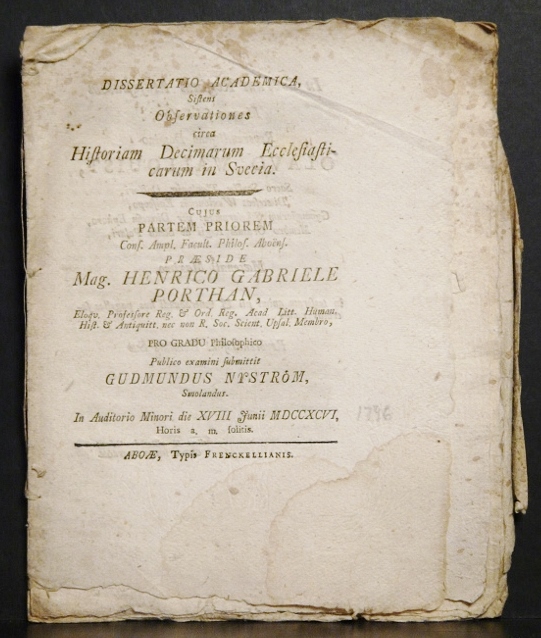 DISSERTATIO ACADEMICA,
Sistens
Observationes
circa
Historiam Decimarum Ecclesiasti-
carum in Svecia.
CUJUS
PARTEM PRIOREM
Cons. Ampl. Facult. Philos. Aboëns.
PRÆSIDE
Mag. HENRICO GABRIELE
PORTHAN,
Eloqv. Professore Reg. & Ord. Reg. Acad. Litt. Human.
Hist. & Antiquitt. nec non R. Soc. Scient. Upsal. Membro,
PRO GRADU Philosophico
Publico examini submittit
GUDMUNDUS NYSTRÖM,
Smolandus.
In Auditorio Minori die XVIII Junii MDCCXCVI,
Horis a. m. solitis.
ABOÆ, Typis FRENCKELLIANIS.
1796